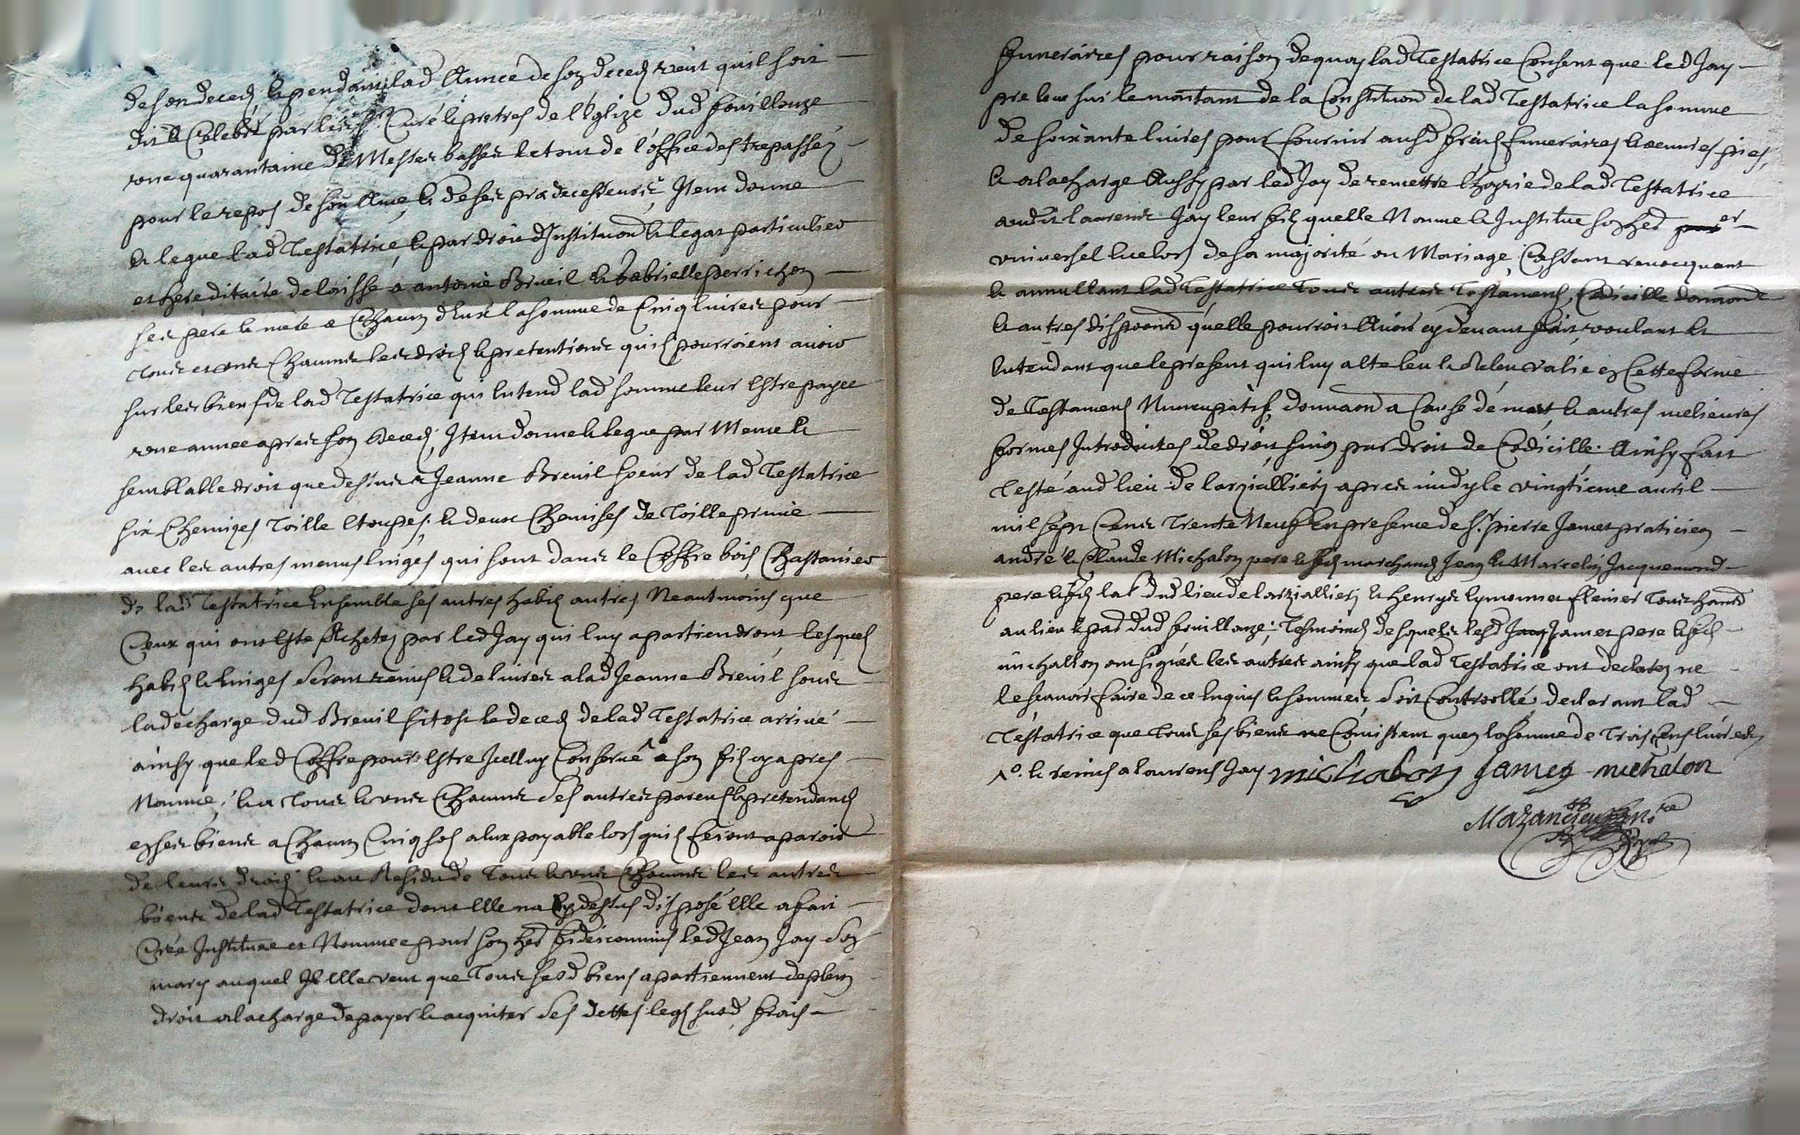 de son deced, & pendant lad Année de son deced veut quil soit
dit & Celebré par les Srs Curé & pretres de l'Eglize dud fouillouze
une quarantaine de Messes basses le tout de l'office des trepassés
pour le repos de son Ame & de ses predecesseurs, Item donne
& legue lad Testatrice, & par droit d'Institution & legat particulier
et hereditaire delaisse a antoine Breuil & Gabrielle perrichon
ses pere & mere a Chacun d'eux la somme de Cinq livres pour
tous et uns Chacuns les droits & pretentions quils pourroient avoir
sur les biens de lad Testatrice qui Entend lad somme leur Estre payée
une année apres son deced; Item donne & legue par Meme &
semblable droit que dessus a Jeanne Breuil soeur de lad Testatrice
six Chemizes Toille Etoupes, & deux Chemises de Toille prime
avec les autres menus linges qui sont dans le Coffre bois Chastanier
de lad Testatrice Ensemble ses autres habits autres Neantmoins que
Ceux qui ont Esté Achetés par led Jay qui luy apartiendront, Lesquels
habits & linges seront remis & delivres a lad Jeanne Breuil sous
la decharge dud Breuil sitost le deced de lad Testatrice arrivé
ainsy que led Coffre pour Estre Icelluy Conservé a son fils cy apres
Nommé; & a tous & uns Chacuns ses autres parens & pretendants
en ses biens a Chacun Cinq sols a eux payable lors quils feront aparoir
de leurs droits & au Residu de Tous & uns Chacuns les autres
biens de lad Testatrice dont Elle na Cy dessus disposé Elle a fait
Créé Instituée et Nommee pour son her fideicommis led Jean Jay son
mary auquel Elle veut que Tous sesd biens apartiennent de plein
droit a la charge de payer & acquiter ses dettes legs susd, frais
funeraires pour raison de quoy lad Testatrice Consent que led Jay
preleve sur le montant de la Constitution de lad Testatrice la somme
de soixante livres pour fournir ausd frais funeraires & oeuvres pies,
& a la charge Aussy par led Jay de remettre l'hoyrie de lad Testatrice
audit laurens Jay leur fils quelle Nomme & Institue son her
universel & lors de sa majorité ou Mariage, Cassant revocquant
& annullant lad Testatrice tous autres Testaments, Codicille donaons
& autres dispoons quelle pourroit Avoir cy devant fait voulant &
Entendant que le present qui luy a Esté leu & Releu valie en Cette forme
de Testament Nuncupatif, donnaon a Cause de mort & autres melieures
formes Introduites de droit sinon par droit de Codicille. Ainsy fait
Testé aud lieu de larzallier apres midy le vingtieme avril
mil sept Cens Trente Neuf En presence de Sr pierre James praticien
andré & Claude Michalon pere & fils marchands Jean & Marcelin Jacquemond
pere & fils dud lieu de larzallier, & henry tous hants
au lieu & par dud fouillouze, Tesmoins desquels lesd James pere & fils
michallon ont signés les autres ainsy que lad Testatrice ont declarés ne
le scavoir faire de ce Enquis & sommés, soit Controllé, declarant lad
Testatrice que Tous ses biens ne Consistent quen la somme de Trois Cens livres
& remis a laurens Jay michalon James michalon